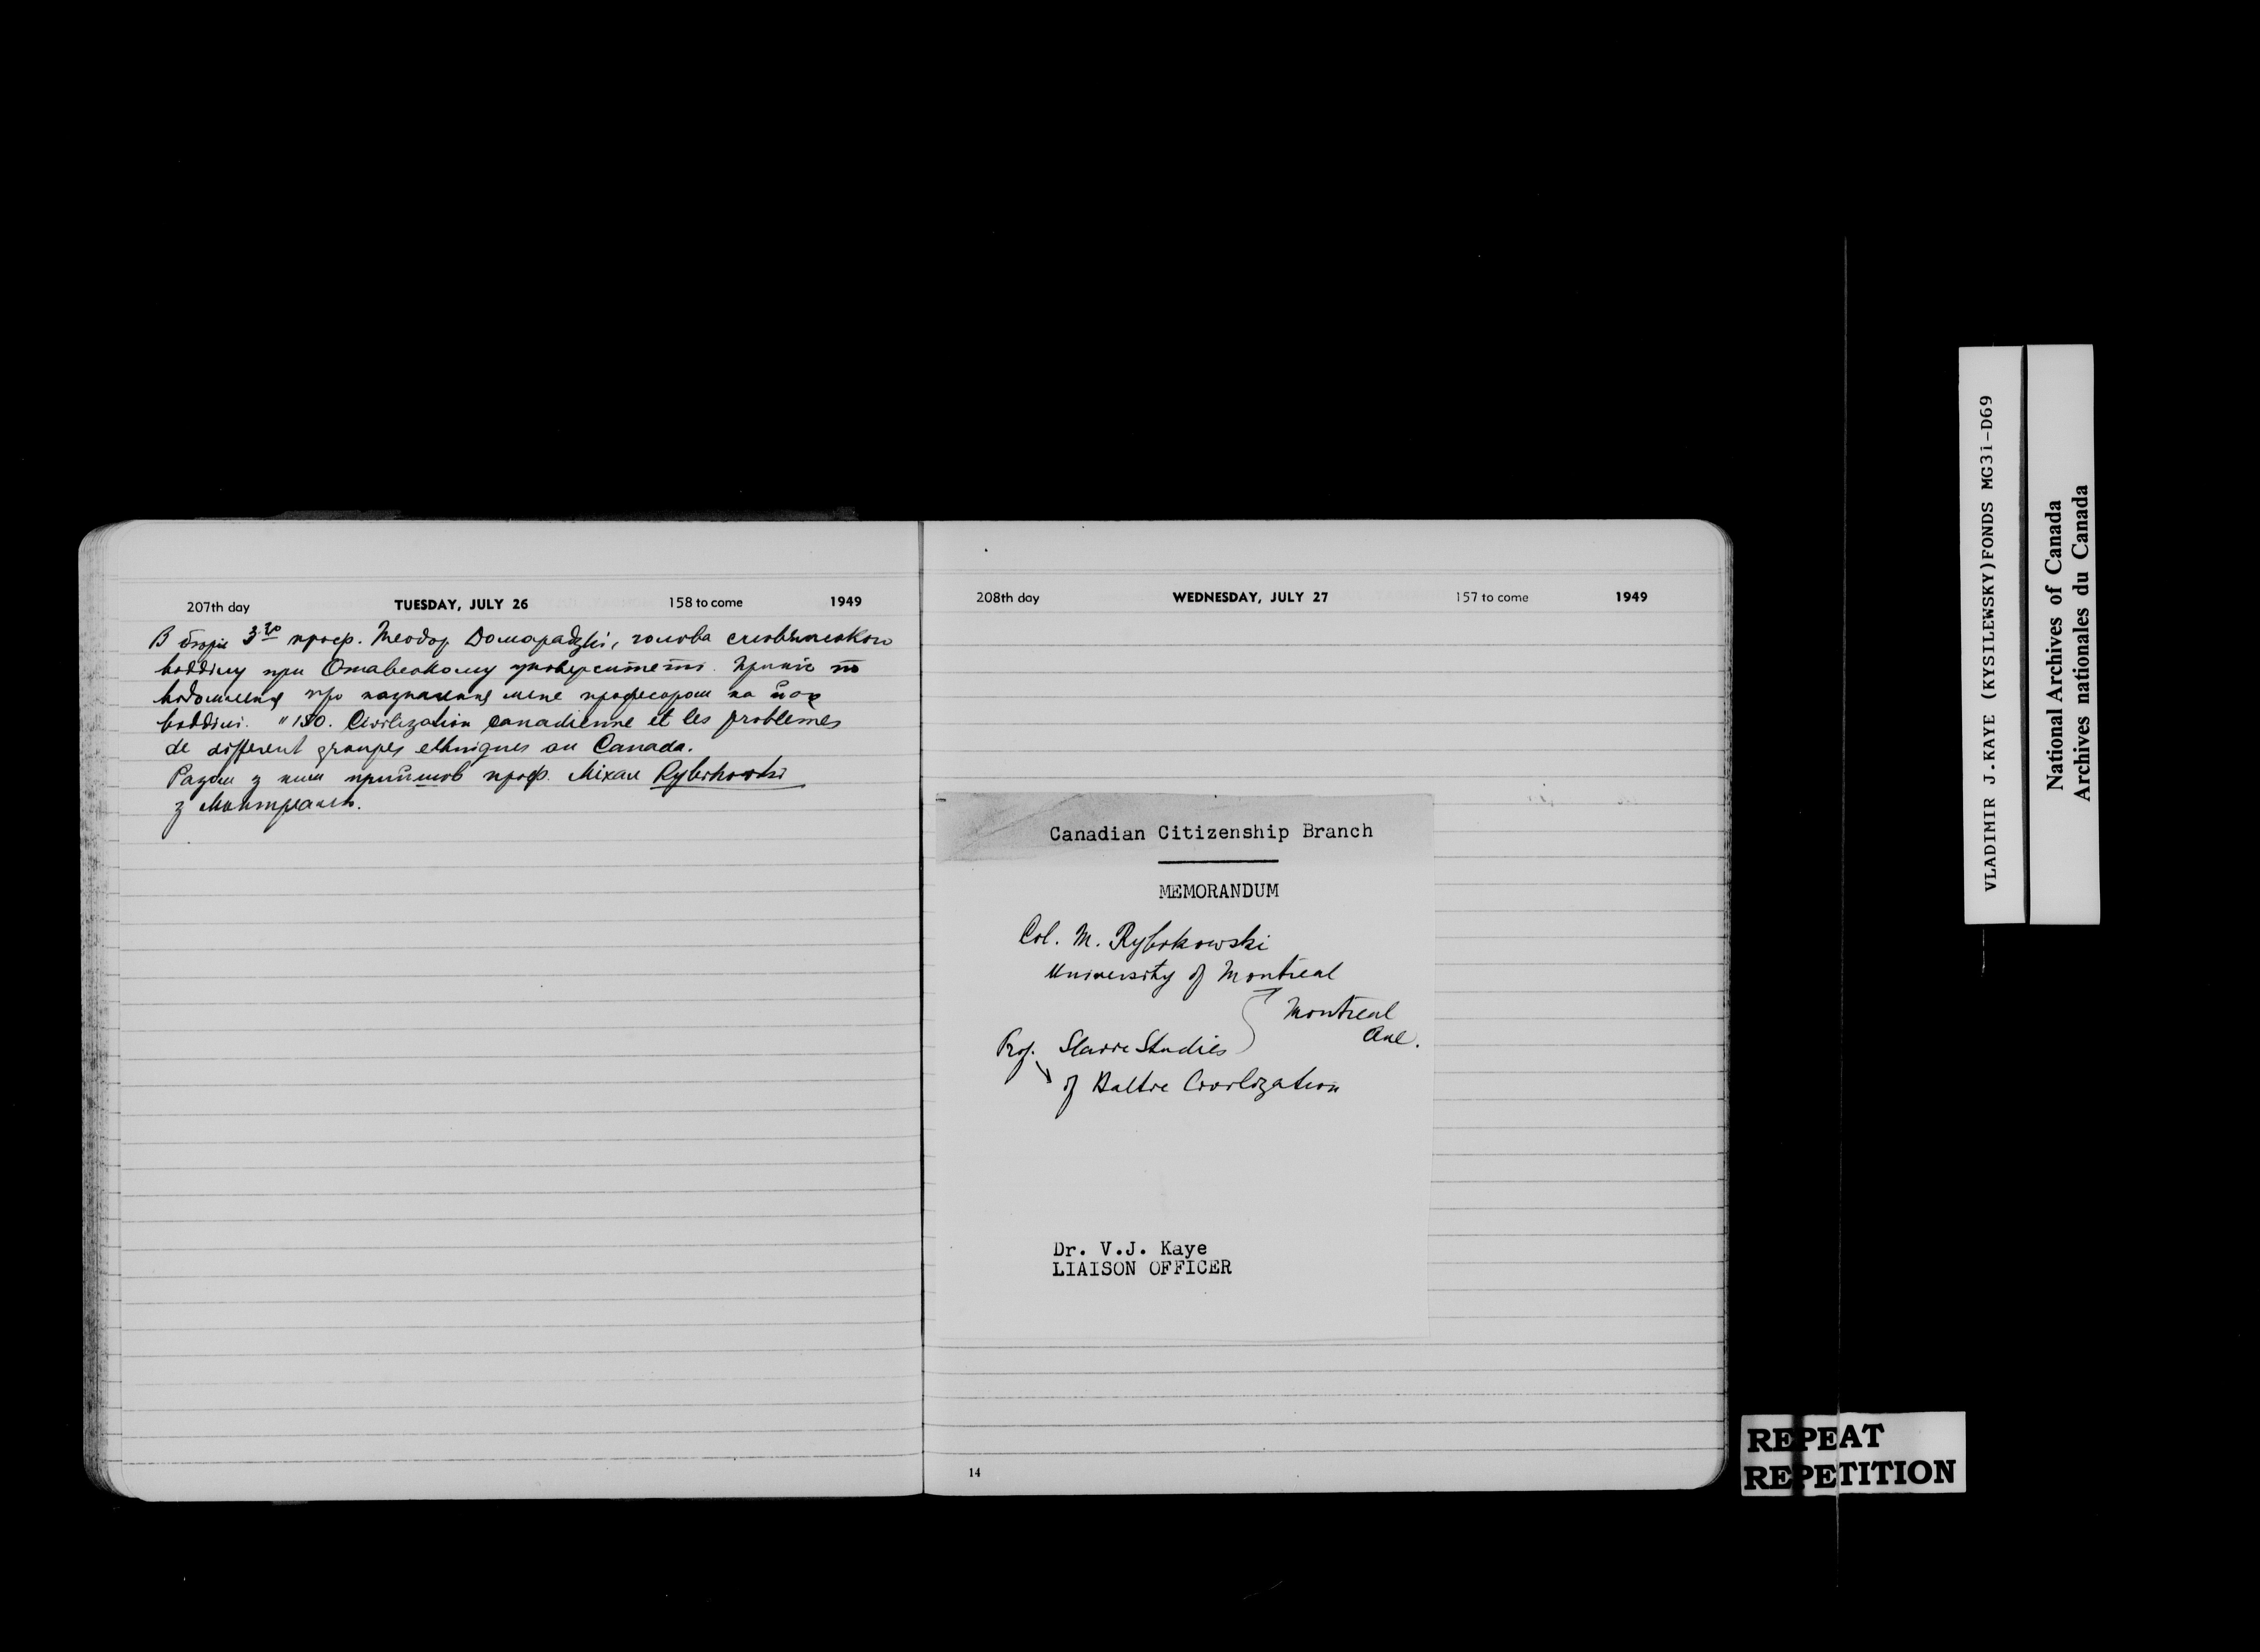 207th day TUESDAY, JULY 26 158 to come 1949
В бюрі 3³⁰ проф. Теодор Домарадзкі, голова словянського
відділу при Отавському університеті. Приніс по
відомлення про назначення мене професором на його
відділі. "150. Civilization canadienne et les problèmes
de different groupes ethniques au Canada.
Разом з ним прийшов проф. Міхал Rybikowski
з Монтреалю.
208th day WEDNESDAY, JULY 27 157 to come 1949
Canadian Citizenship Branch
MEMORANDUM
Col. M. Rybikowski
University of Montreal
Montreal
Ave.
Prof. Slavic Studies
of Baltic Civilization
Dr. V.J. Kaye
LIAISON OFFICER
14
VLADIMIR J.KAYE (KYSILEWSKY)FONDS MG31-D69
National Archives of Canada
Archives nationales du Canada
REPEAT
REPETITION